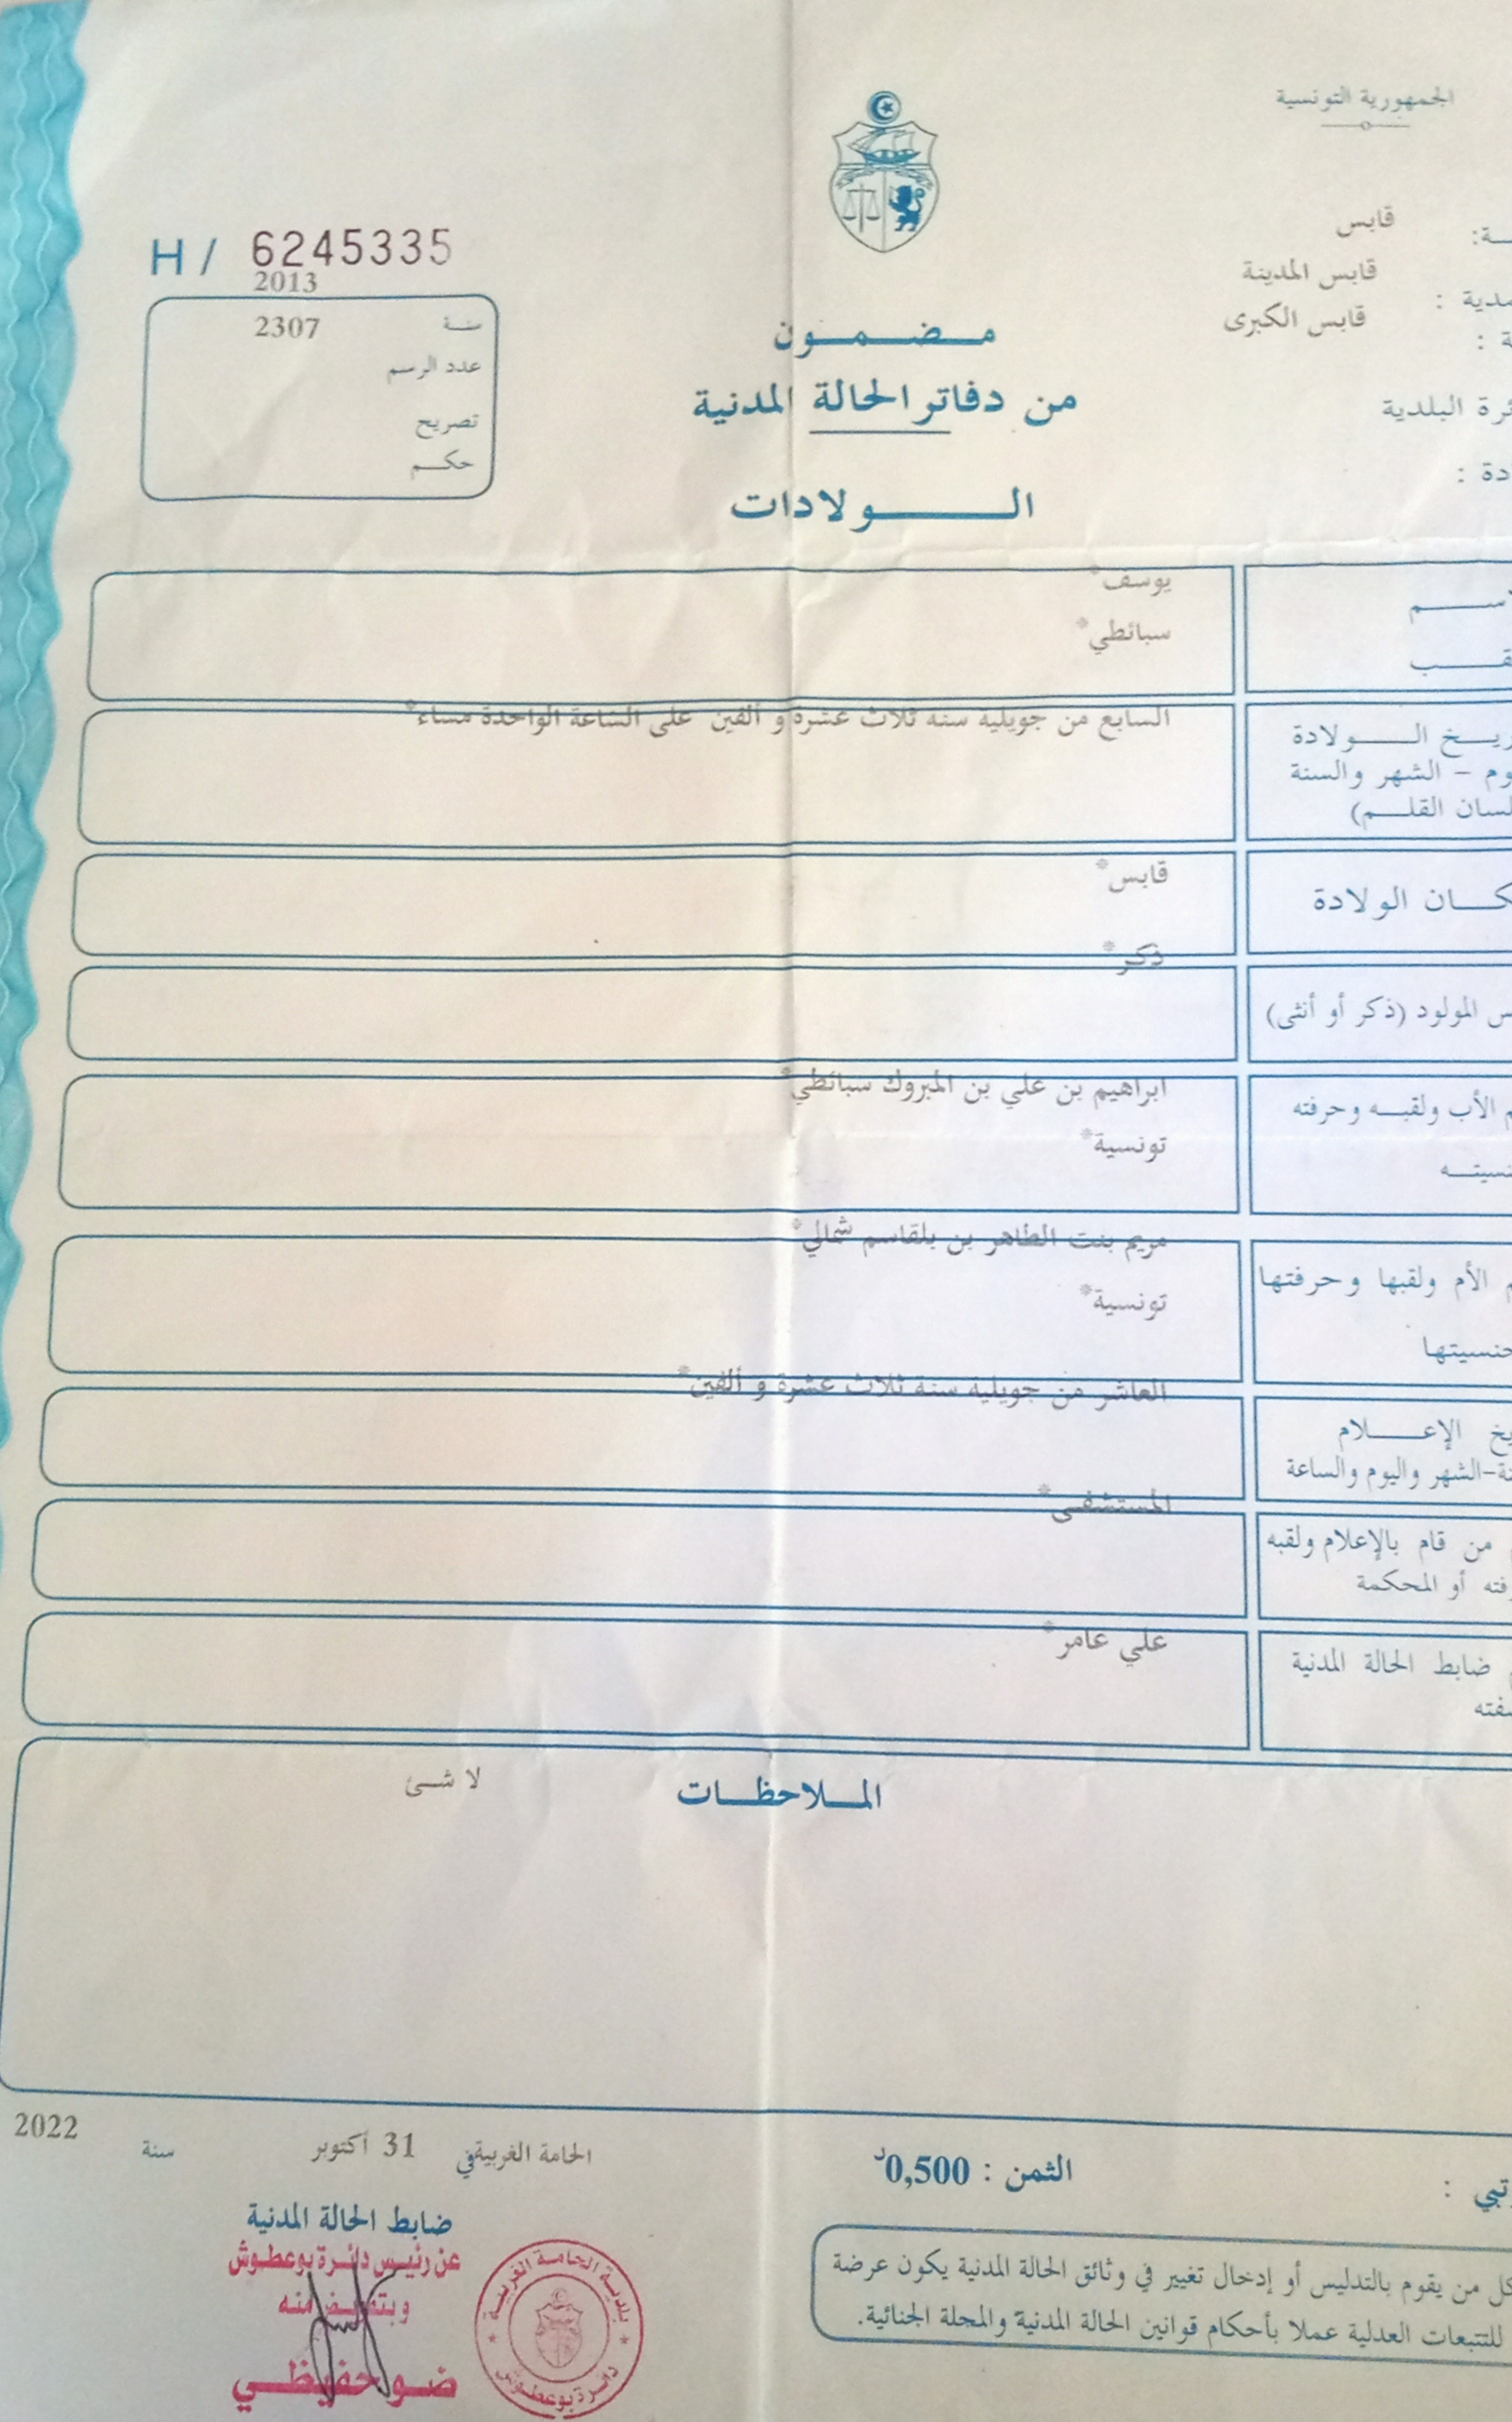 الجمهورية التونسية
قابس
قابس المدينة
قابس الكبرى
ـرة البلدية
H / 6245335
2013
سنة 2307
عدد الرسم
تصريح
حكم
مضمون
من دفاتر الحالة المدنية
الولادات
يوسف*
سبائطي*
السابع من جويلية سنة ثلاث عشرة و ألفين على الساعة الواحدة مساء*
ـريخ الولادة
ـوم - الشهر والسنة
ـلسان القلم)
قابس*
ـكان الولادة
ذكر*
ـس المولود (ذكر أو أنثى)
ابراهيم بن علي بن المبروك سبائطي*
ـم الأب ولقبه وحرفته
تونسية*
ـنسيته
مريم بنت الطاهر بن بلقاسم شمالي*
ـم الأم ولقبها وحرفتها
تونسية*
ـجنسيتها
العاشر من جويلية سنة ثلاث عشرة و ألفين*
ـيخ الإعلام
ـنة-الشهر واليوم والساعة
المستشفى*
ـم من قام بالإعلام ولقبه
ـرفته أو المحكمة
علي عامر*
ـم ضابط الحالة المدنية
ـفته
الملاحظات
لا شئ
الحامة الغربية في 31 أكتوبر سنة 2022
الثمن : 0,500د
ـتبي :
ضابط الحالة المدنية
عن رئيس دائرة بوعطوش
وبتفويض منه
ضو حفيظي
بلدية الحامة الغربية
دائرة بوعطوش
كل من يقوم بالتدليس أو إدخال تغيير في وثائق الحالة المدنية يكون عرضة
للتتبعات العدلية عملا بأحكام قوانين الحالة المدنية والمجلة الجنائية.